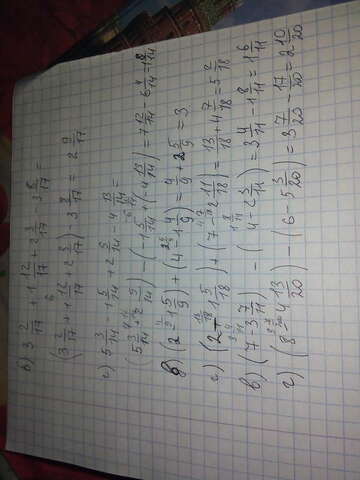 в) 3 2/17 + 1 12/17 + 2 3/17 - 3 8/17 =
(3 2/17 + 1 12/17 + 2 3/17) - 3 8/17 = 2 9/17
г) 5 3/14 - 1 5/14 + 2 5/14 - 4 13/14 =
(5 3/14 + 2 5/14) - (-1 5/14 + (-4 13/14) = 7 12/14 - 6 4/14 = 1 8/14
б) (2 - 1 5/9) + (4 - 1 4/9) = 4/9 + 2 5/9 = 3
г) (2 - 1 5/18) + (7 - 2 11/18) = 13/18 + 4 7/18 = 5 2/18
в) (7 - 3 7/11) - (4 - 2 3/11) = 3 4/11 - 1 8/11 = 1 6/11
г) (8 - 4 13/20) - (6 - 5 3/20) = 3 7/20 - 17/20 = 2 10/20